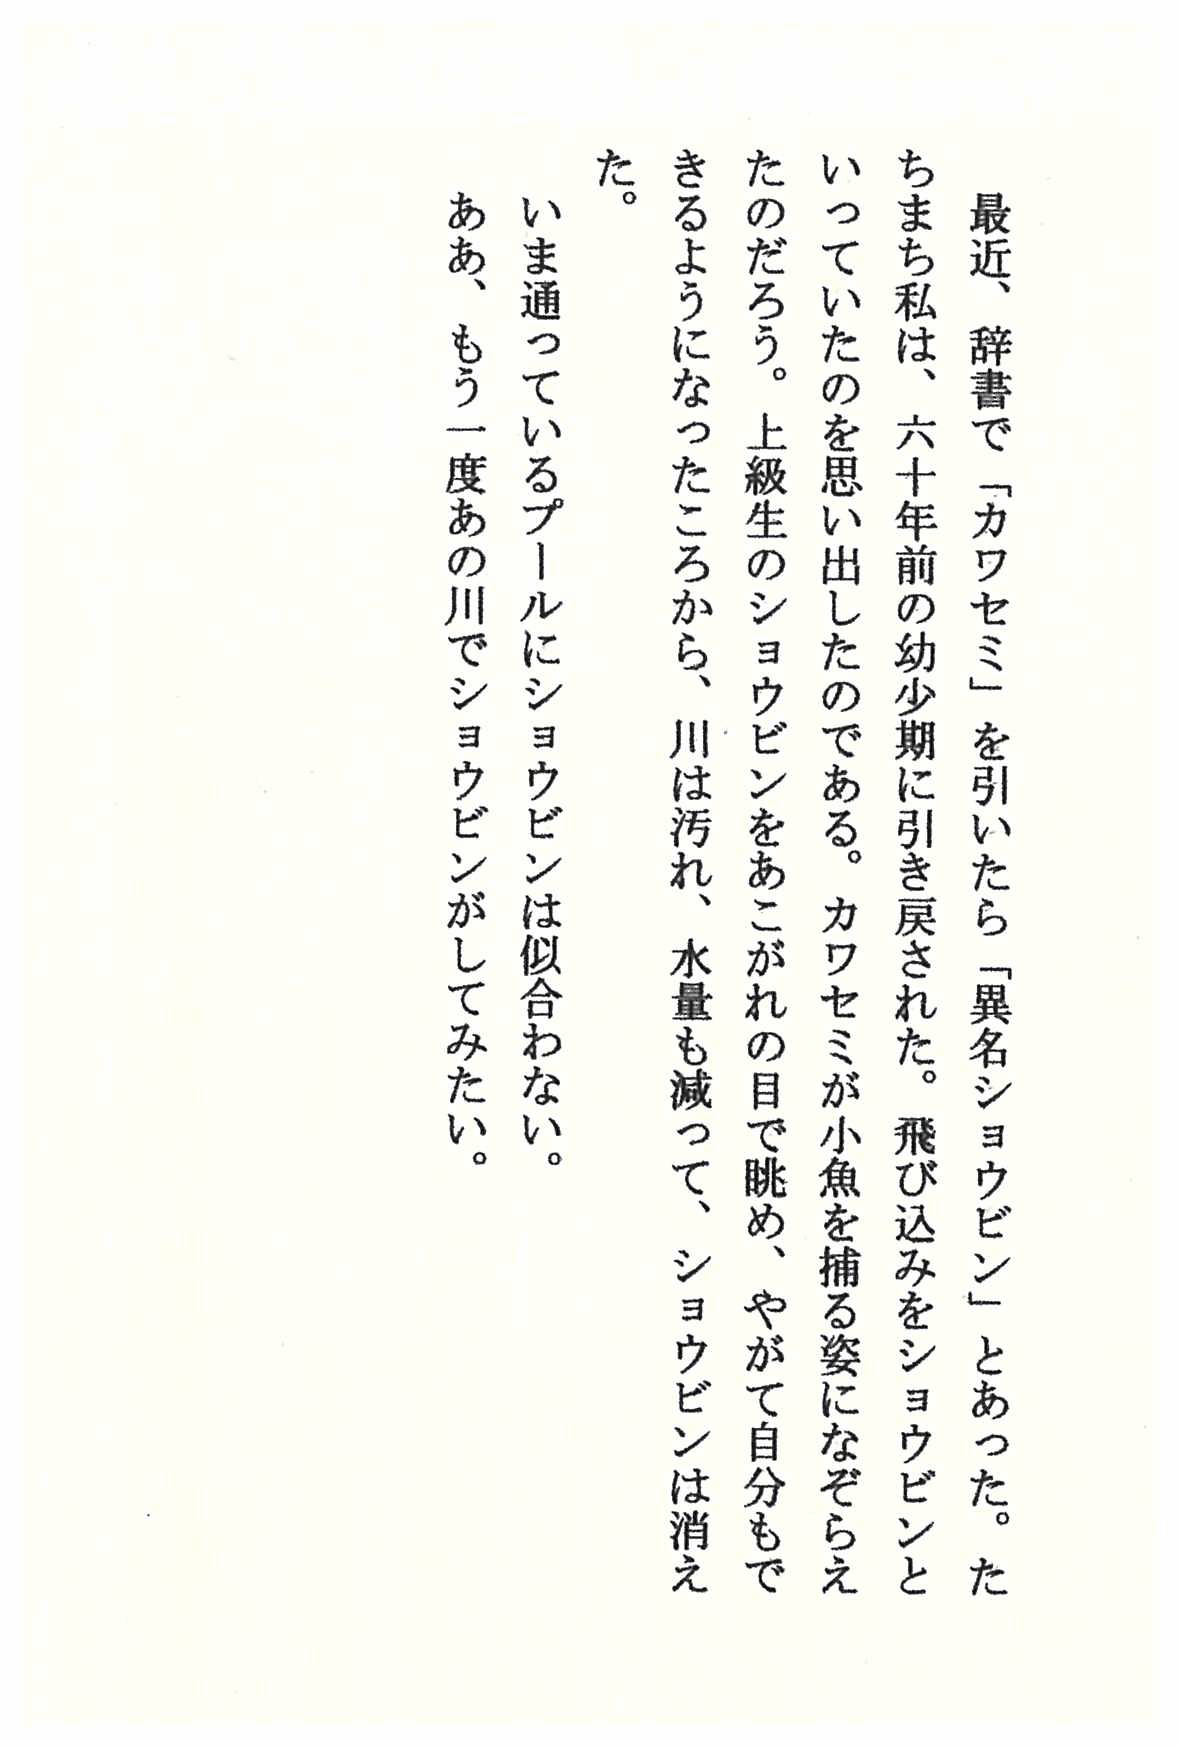 最近、辞書で「カワセミ」を引いたら「異名ショウビン」とあった。た
ちまち私は、六十年前の幼少期に引き戻された。飛び込みをショウビンと
いっていたのを思い出したのである。カワセミが小魚を捕る姿になぞらえ
たのだろう。上級生のショウビンをあこがれの目で眺め、やがて自分もで
きるようになったころから、川は汚れ、水量も減って、ショウビンは消え
た。
いま通っているプールにショウビンは似合わない。
ああ、もう一度あの川でショウビンがしてみたい。